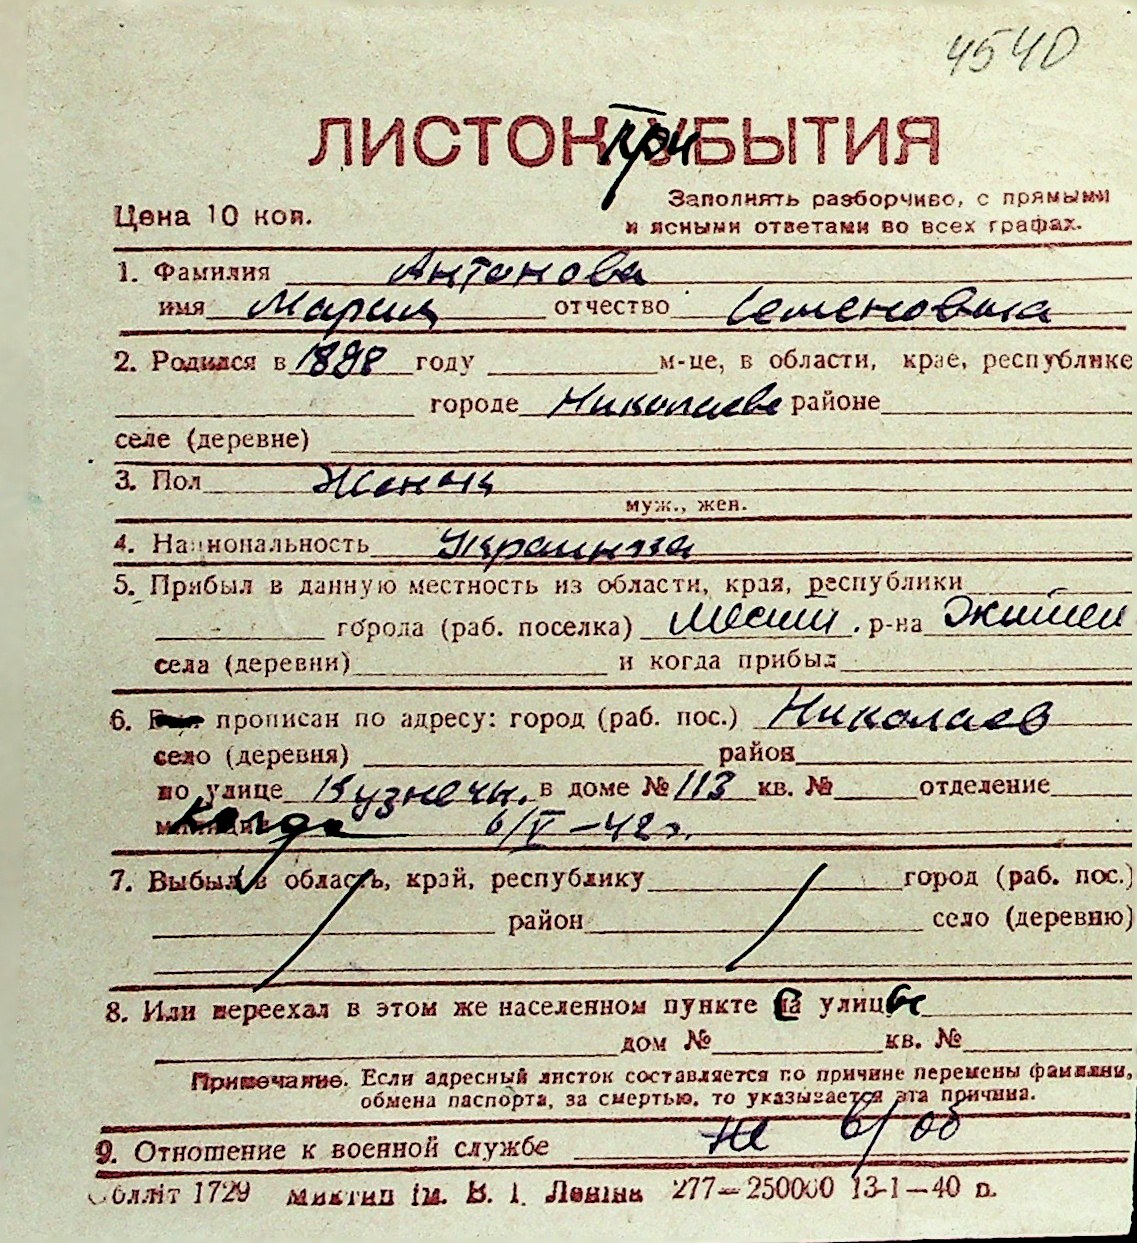 4540
ЛИСТОК При УБЫТИЯ
Цена 10 коп.
Заполнять разборчиво, с прямыми
и ясными ответами во всех графах.
1. Фамилия Антонова
имя Мария отчество Семеновна
2. Родился в 1898 году м-це, в области, крае, республике
городе Николаеве районе
селе (деревне)
3. Пол Женщ
муж., жен.
4. Национальность Украинка
5. Прибыл в данную местность из области, края, республики
города (раб. поселка) р-на
села (деревни) и когда прибыл
6. прописан по адресу: город (раб. пос.) Николаев
село (деревня) район
по улице Кузнечн. в доме № 113 кв. № отделение
когда 6/V-42г.
7. Выбыл в область, край, республику город (раб. пос.)
район село (деревню)
8. Или переехал в этом же населенном пункте с улицы
дом № кв. №
Примечание. Если адресный листок составляется по причине перемены фамилии,
обмена паспорта, за смертью, то указывается эта причина.
9. Отношение к военной службе не в/об
Обллiт 1729 iм. В. I. Ленiна 277—250000 13-1—40 р.